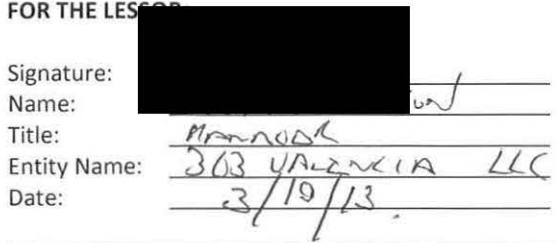 FOR THE LESSOR:
Signature:
Name:
Title: MANAGER
Entity Name: 363 VALENCIA LLC
Date: 3/19/13